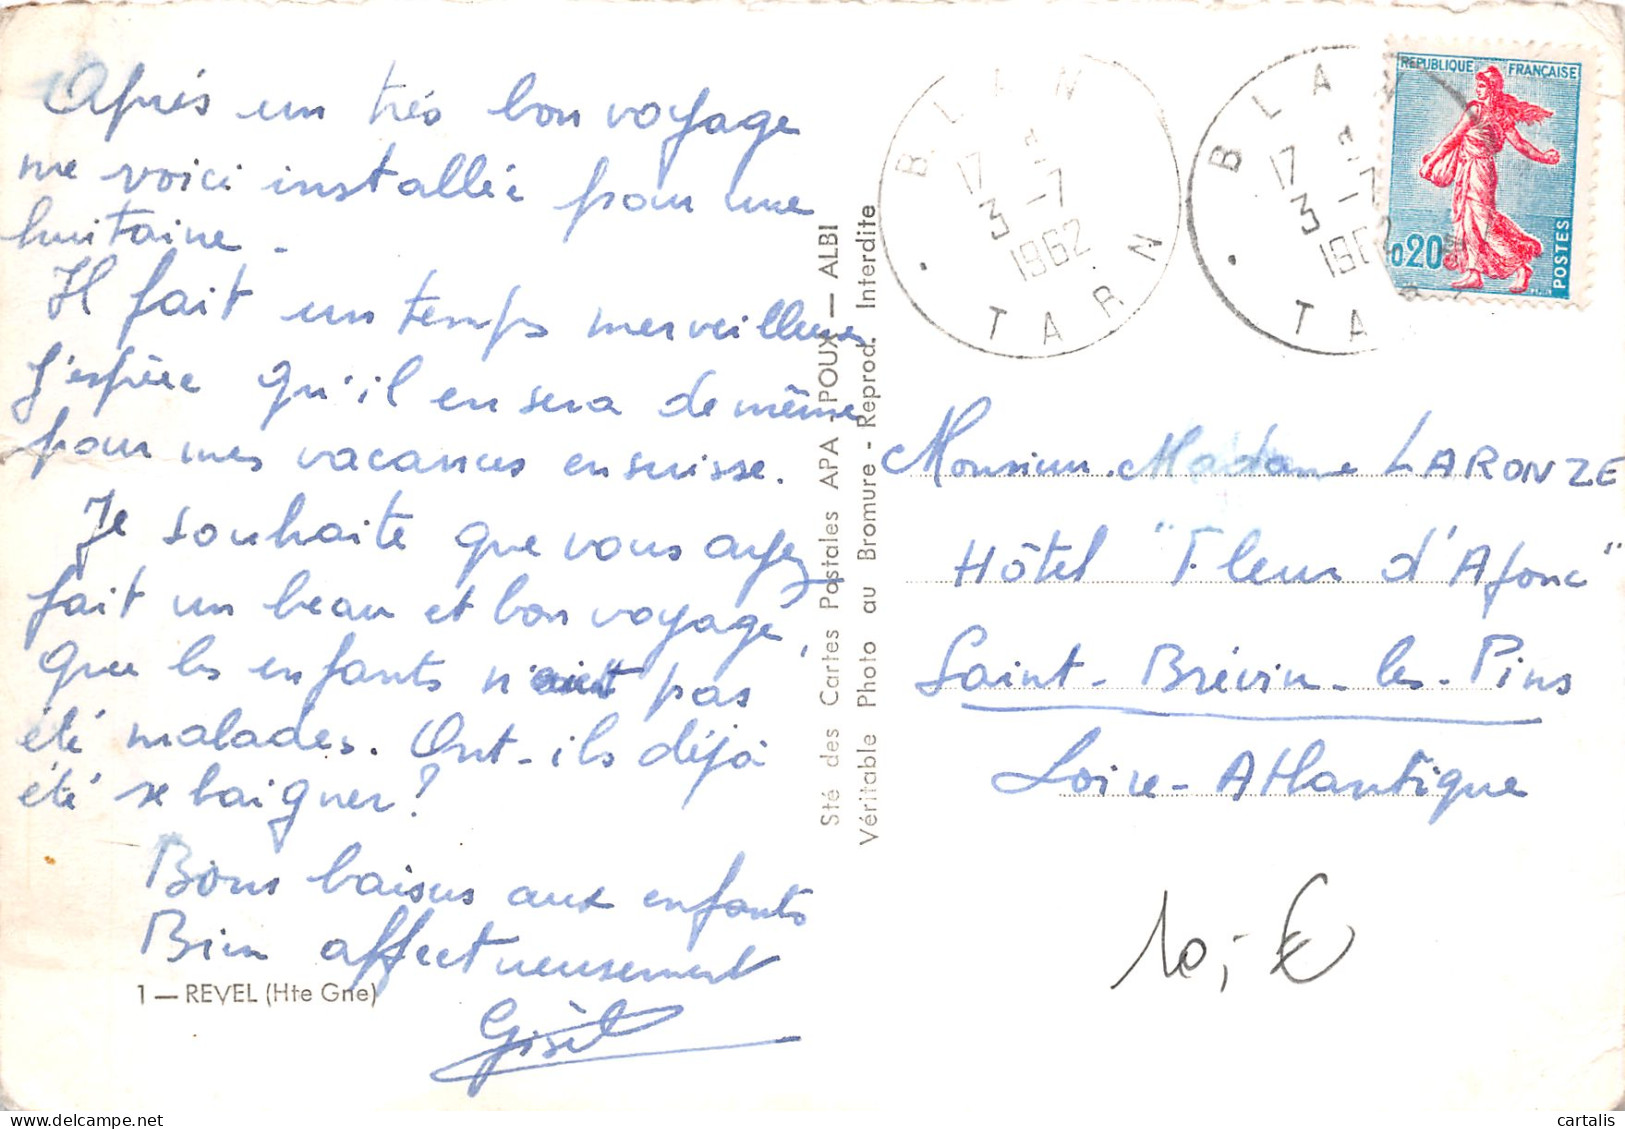 Après un très bon voyage
me voici installée pour une
huitaine.
Il fait un temps merveilleux
J'espère qu'il en sera de même
pour mes vacances en suisse.
Je souhaite que vous ayez
fait un beau et bon voyage,
que les enfants n'aient pas
été malades. Ont-ils déjà
été se baigner?
Bons baisers aux enfants
Bien affectueusement
1 — REVEL (Hte Gne)
Sté des Cartes Postales APA - POUX — ALBI
Véritable Photo au Bromure - Reprod. Interdite
BLAN
17
3 -7
1962
TARN
BLAN
17
3 -7
1962
TAR
REPUBLIQUE FRANÇAISE
0,20
POSTES
Monsieur Madame LARONZE
Hôtel "Fleur d'Ajonc"
Saint-Brévin-les-Pins
Loire-Atlantique
10,- €
cartalis